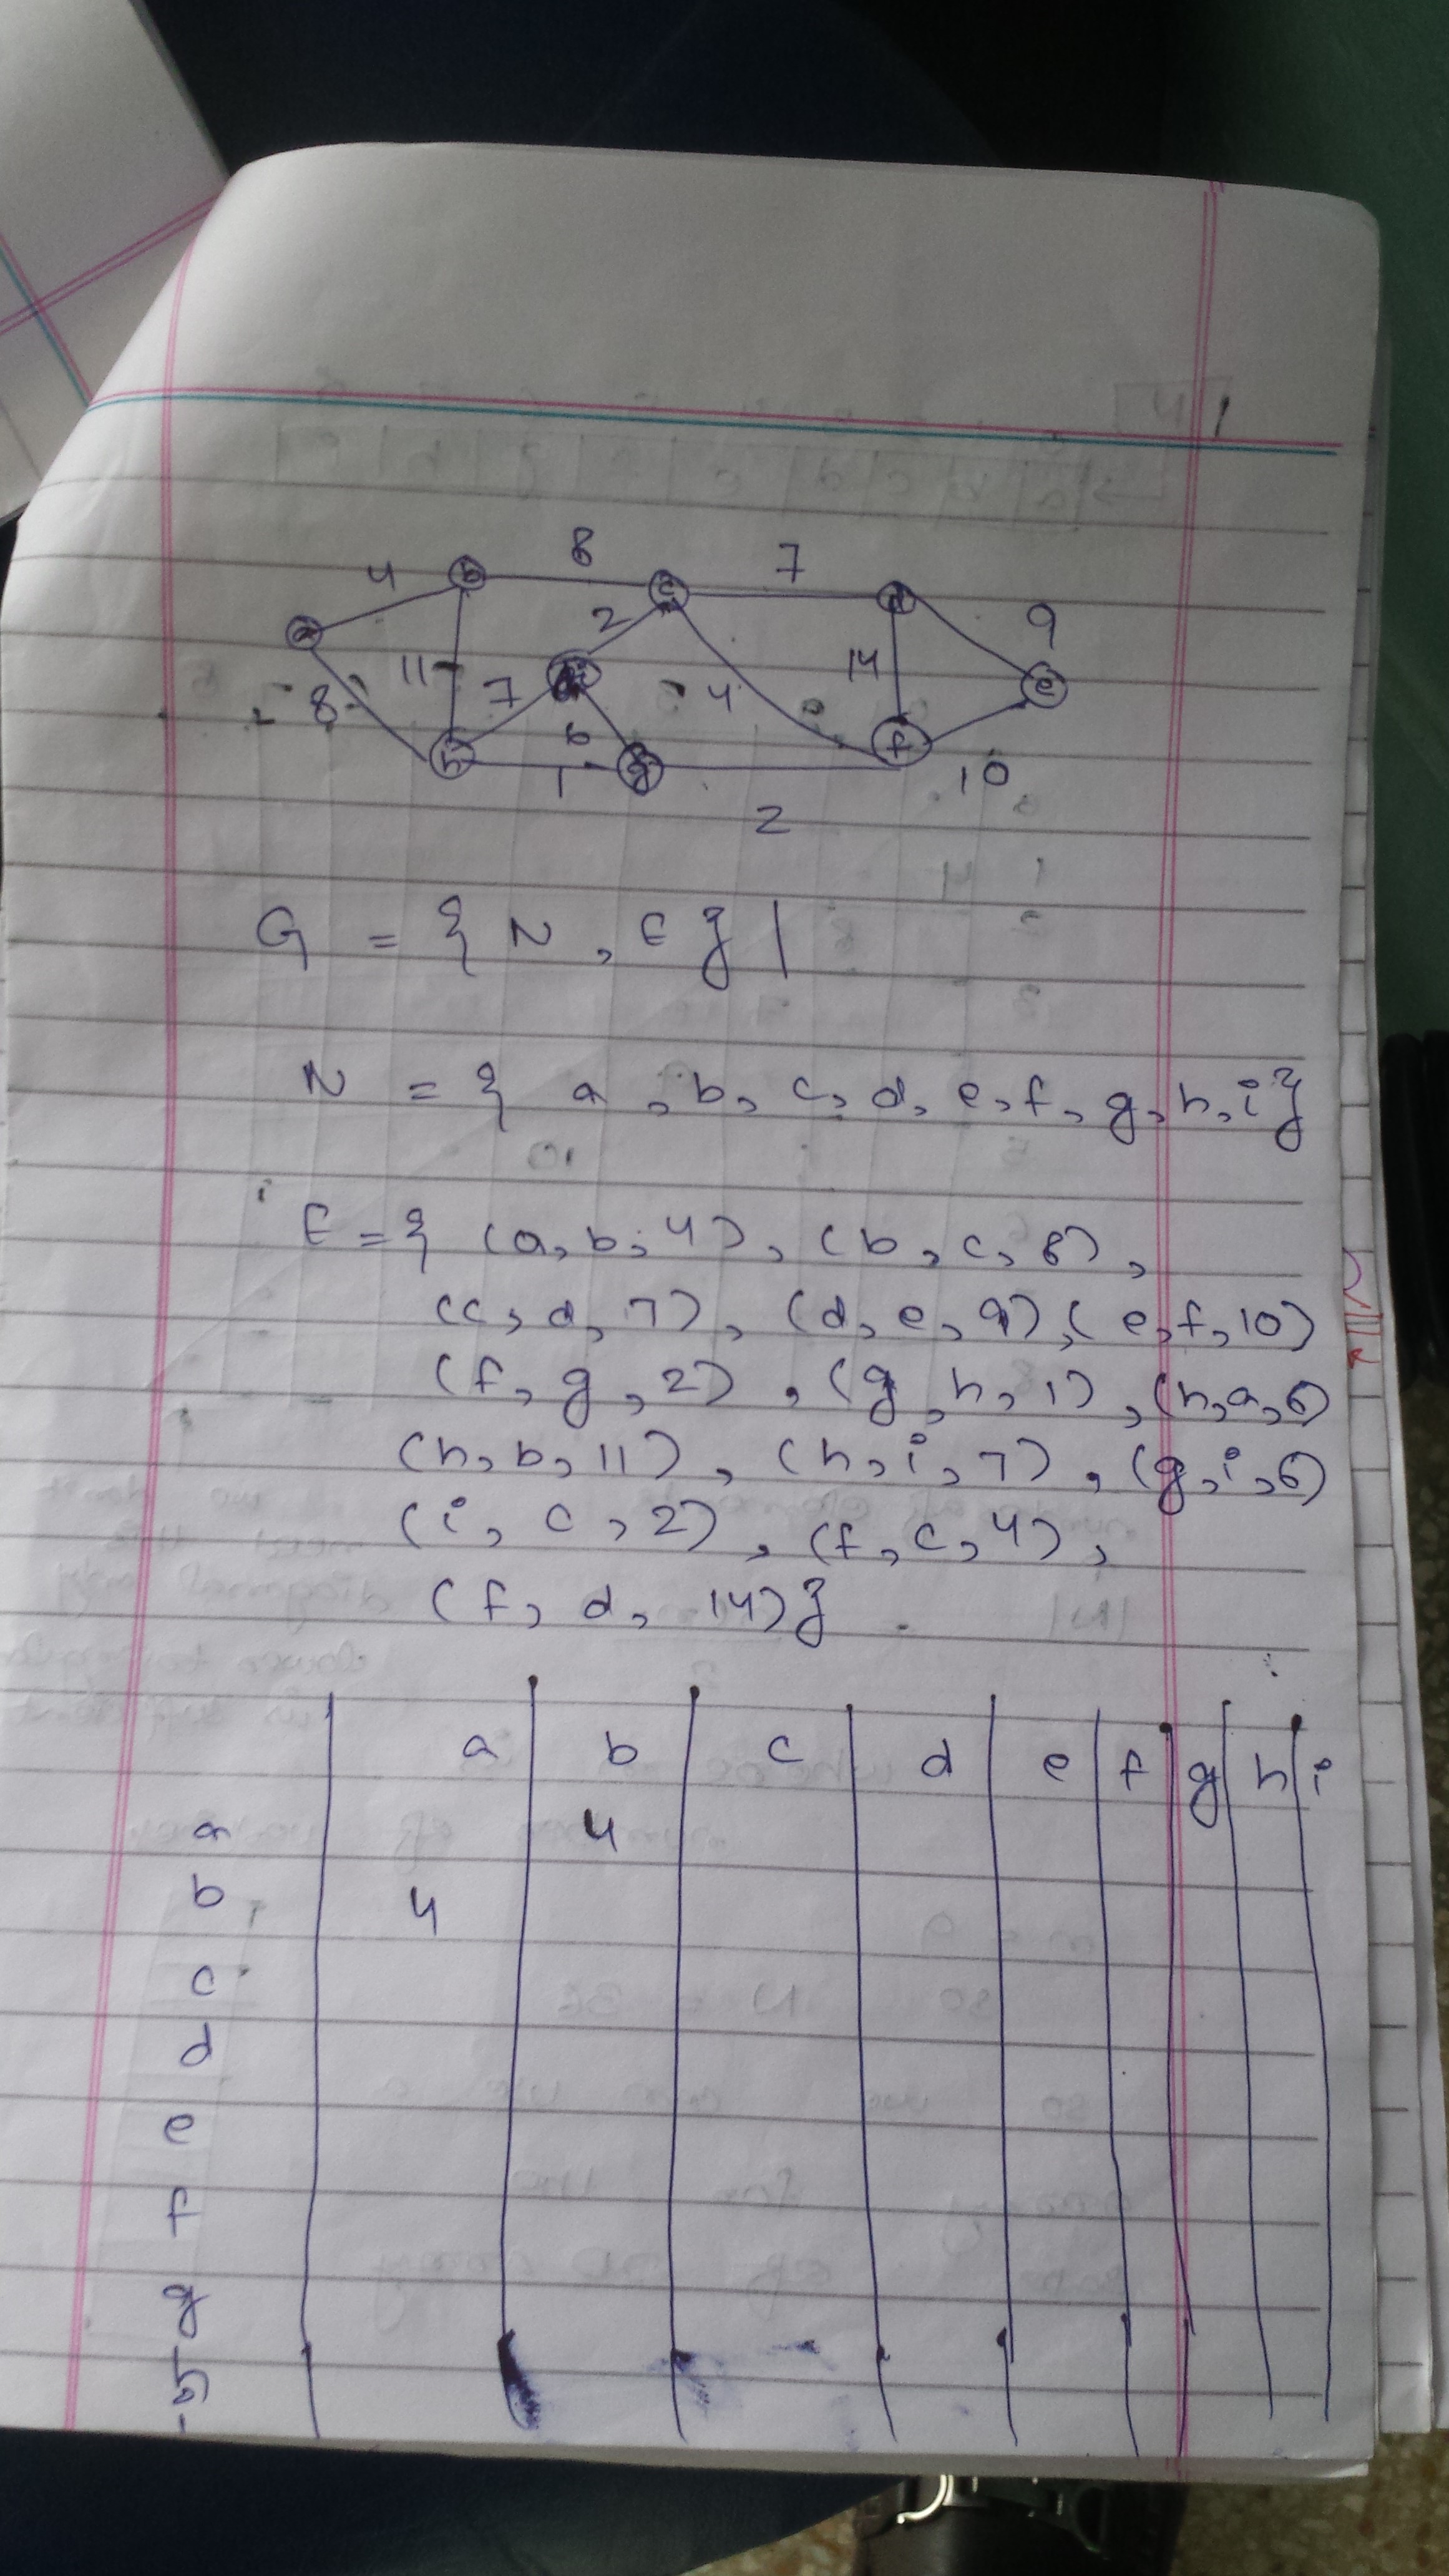 4 8 7
b c
2 9
a d
11 14
8 7 4 e
6
h g f
1 10
2
G = { N, E } |
N = { a, b, c, d, e, f, g, h, i }
E = { (a, b, 4), (b, c, 8),
(c, d, 7), (d, e, 9), (e, f, 10)
(f, g, 2), (g, h, 1), (h, a, 8)
(h, b, 11), (h, i, 7), (g, i, 6)
(i, c, 2), (f, c, 4),
(f, d, 14) }
a b c d e f g h i
a 4
b 4
c
d
e
f
g
h
i